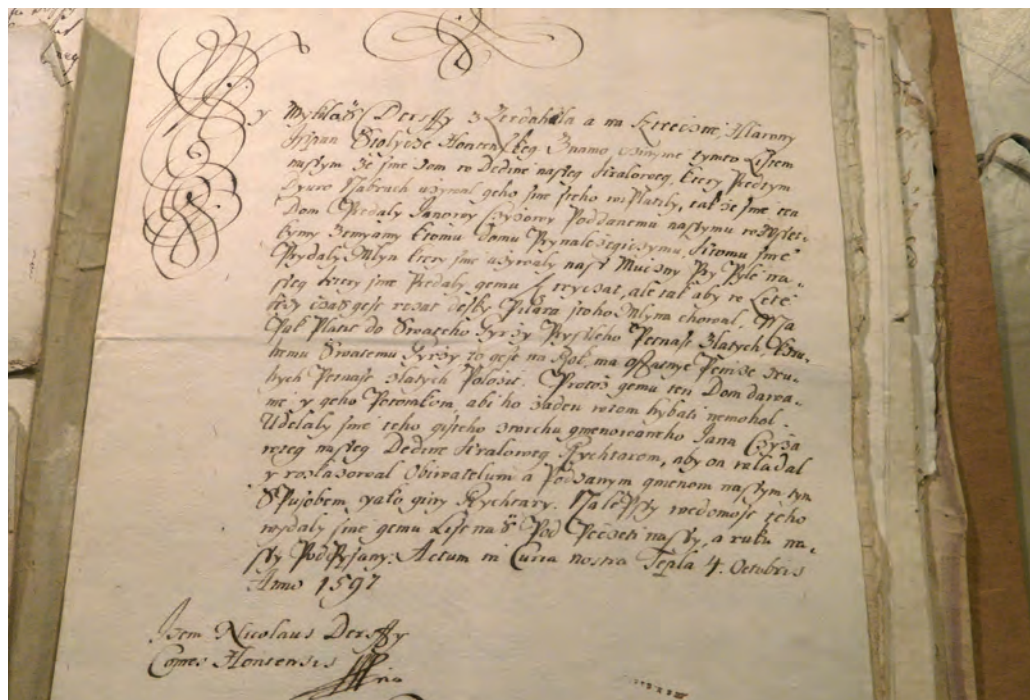 y Myklaš Dersffy z Zerdahela a na Hlawny
Isspan Stolycze Hontenskeg Znamo czinyme tymto Listem
nassym že sme Dom w Dedine nasseg Kraloweg, ktery Predtym
Dyuro Nabrach užywal geho sme s neho wiplatily, tak že sme ten
Dom Predaly Janowy Czyžowy Poddanemu nassymu ze wsset-
kymy Zemyamy ktomu domu Prynaležegiczymu, ktomu sme
Prydaly Mlyn ktery sme užywaly nass Mučny Pry Pyle na-
sseg ktery sme Predaly gemu ale tak aby w Lete
čas gest rezat desky Pilara stoho Mlyna chowal. Ma
tak Platit do Swateho Gyržy Prystiho Petnast Zlatych, Dru-
hemu Swatemu Gyržy to gest na Rok, ma ostatnye Penize dru-
hych Petnast Zlatych Položit. Protož gemu ten Dom dawa-
me y geho Potomkom, abi ho žaden wtom hybati nemohol.
Udelaly sme teho gisteho zwrchu gmenowaneho Jana Czyža
wteg nasseg Dedine Kraloweg Rychtarom, aby on wladal
y rozkazowal Obiwatelum a Podanym gmenom nassym tym
Spusobem yako giny Rychtary. Na lepssy wedomost teho
wydaly sme gemu List naš Pod Pečeti nassy, a ruku na-
ssy Podpysany. Actum in Curia nostra Tepla 4. Octobris
Anno 1597
Idem Nicolaus Dersffy
Comes Hontensis